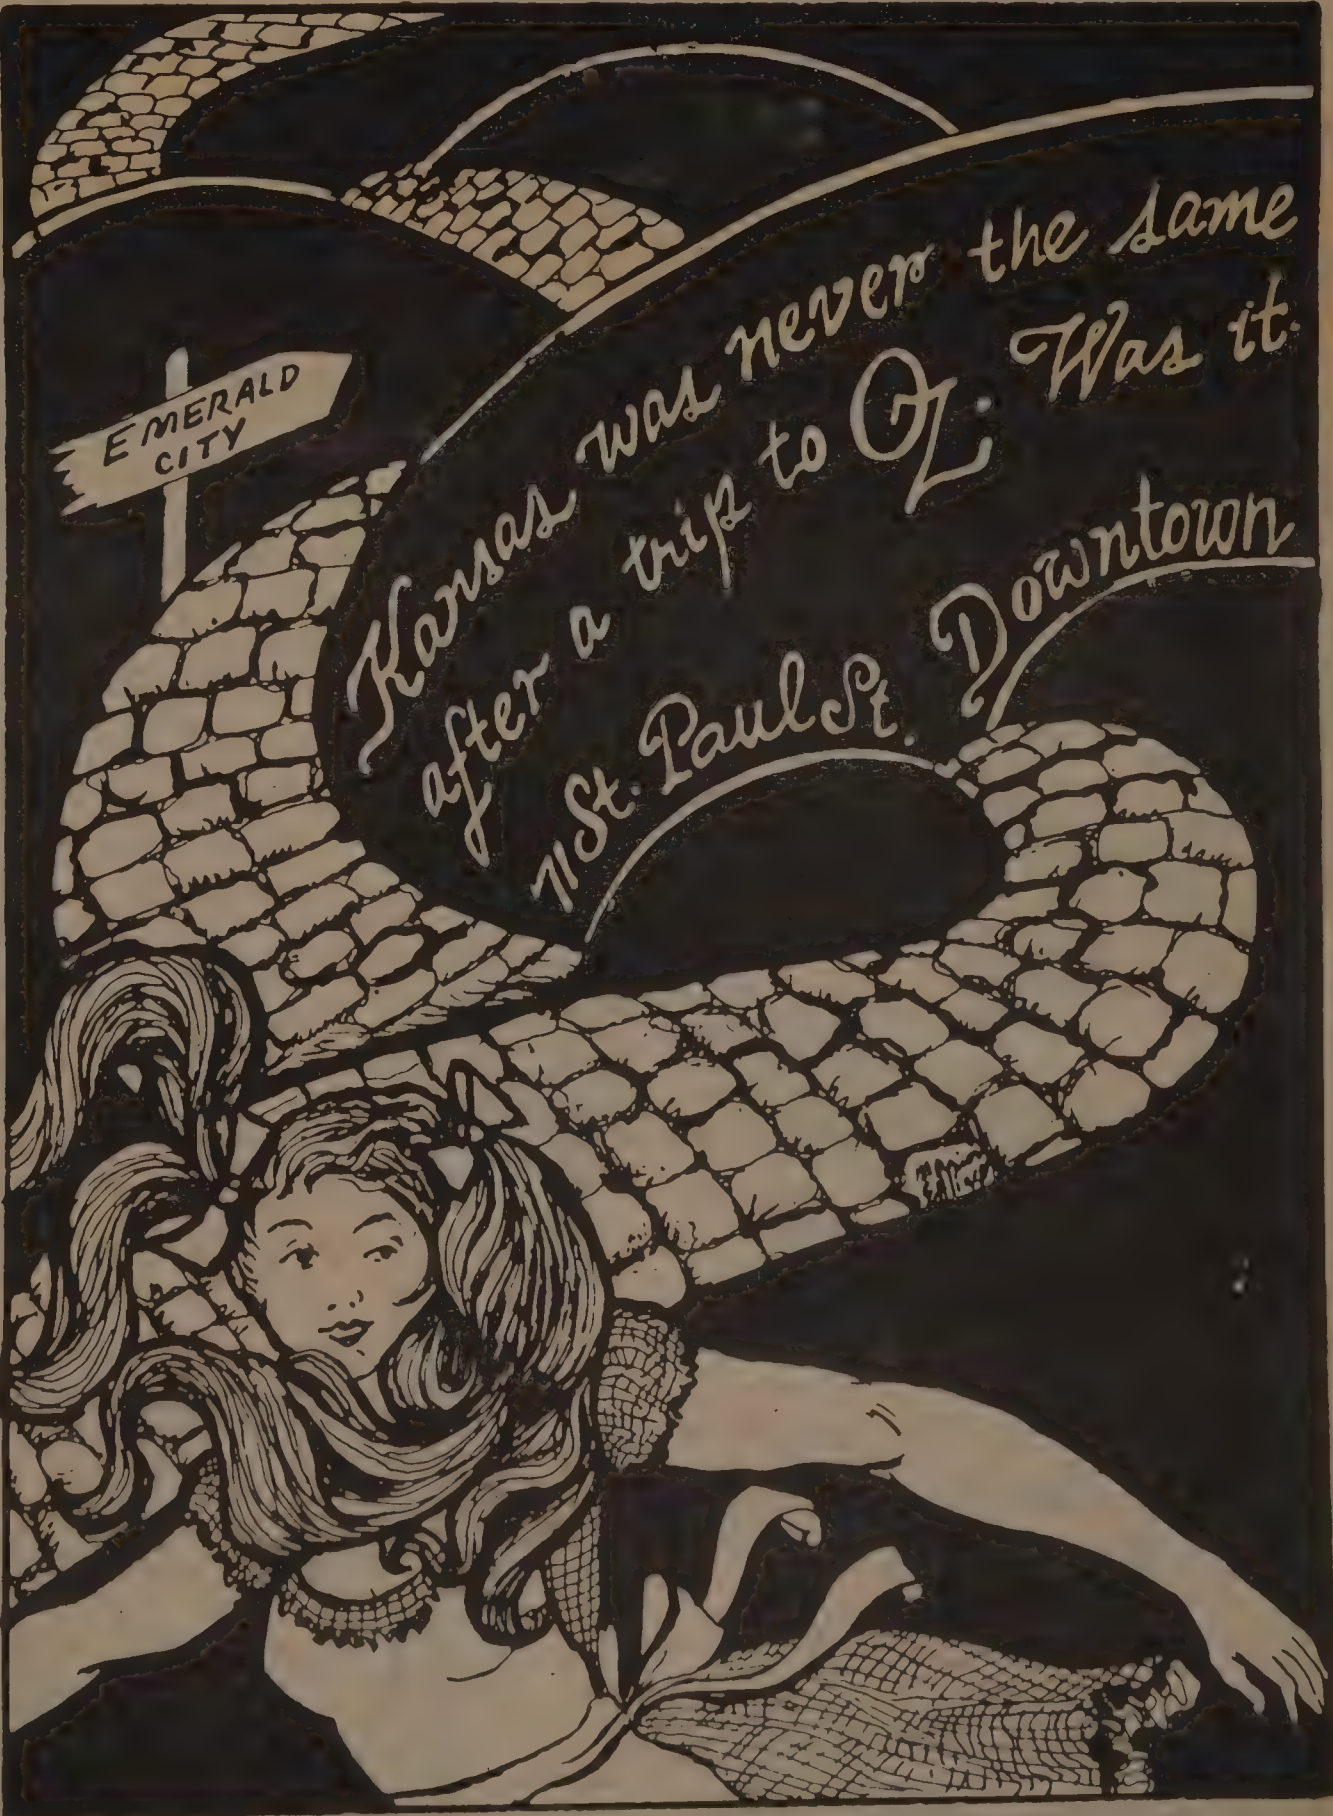 EMERALD
CITY
Kansas was never the same
after a trip to Oz. Was it.
N St. Paul St. Downtown